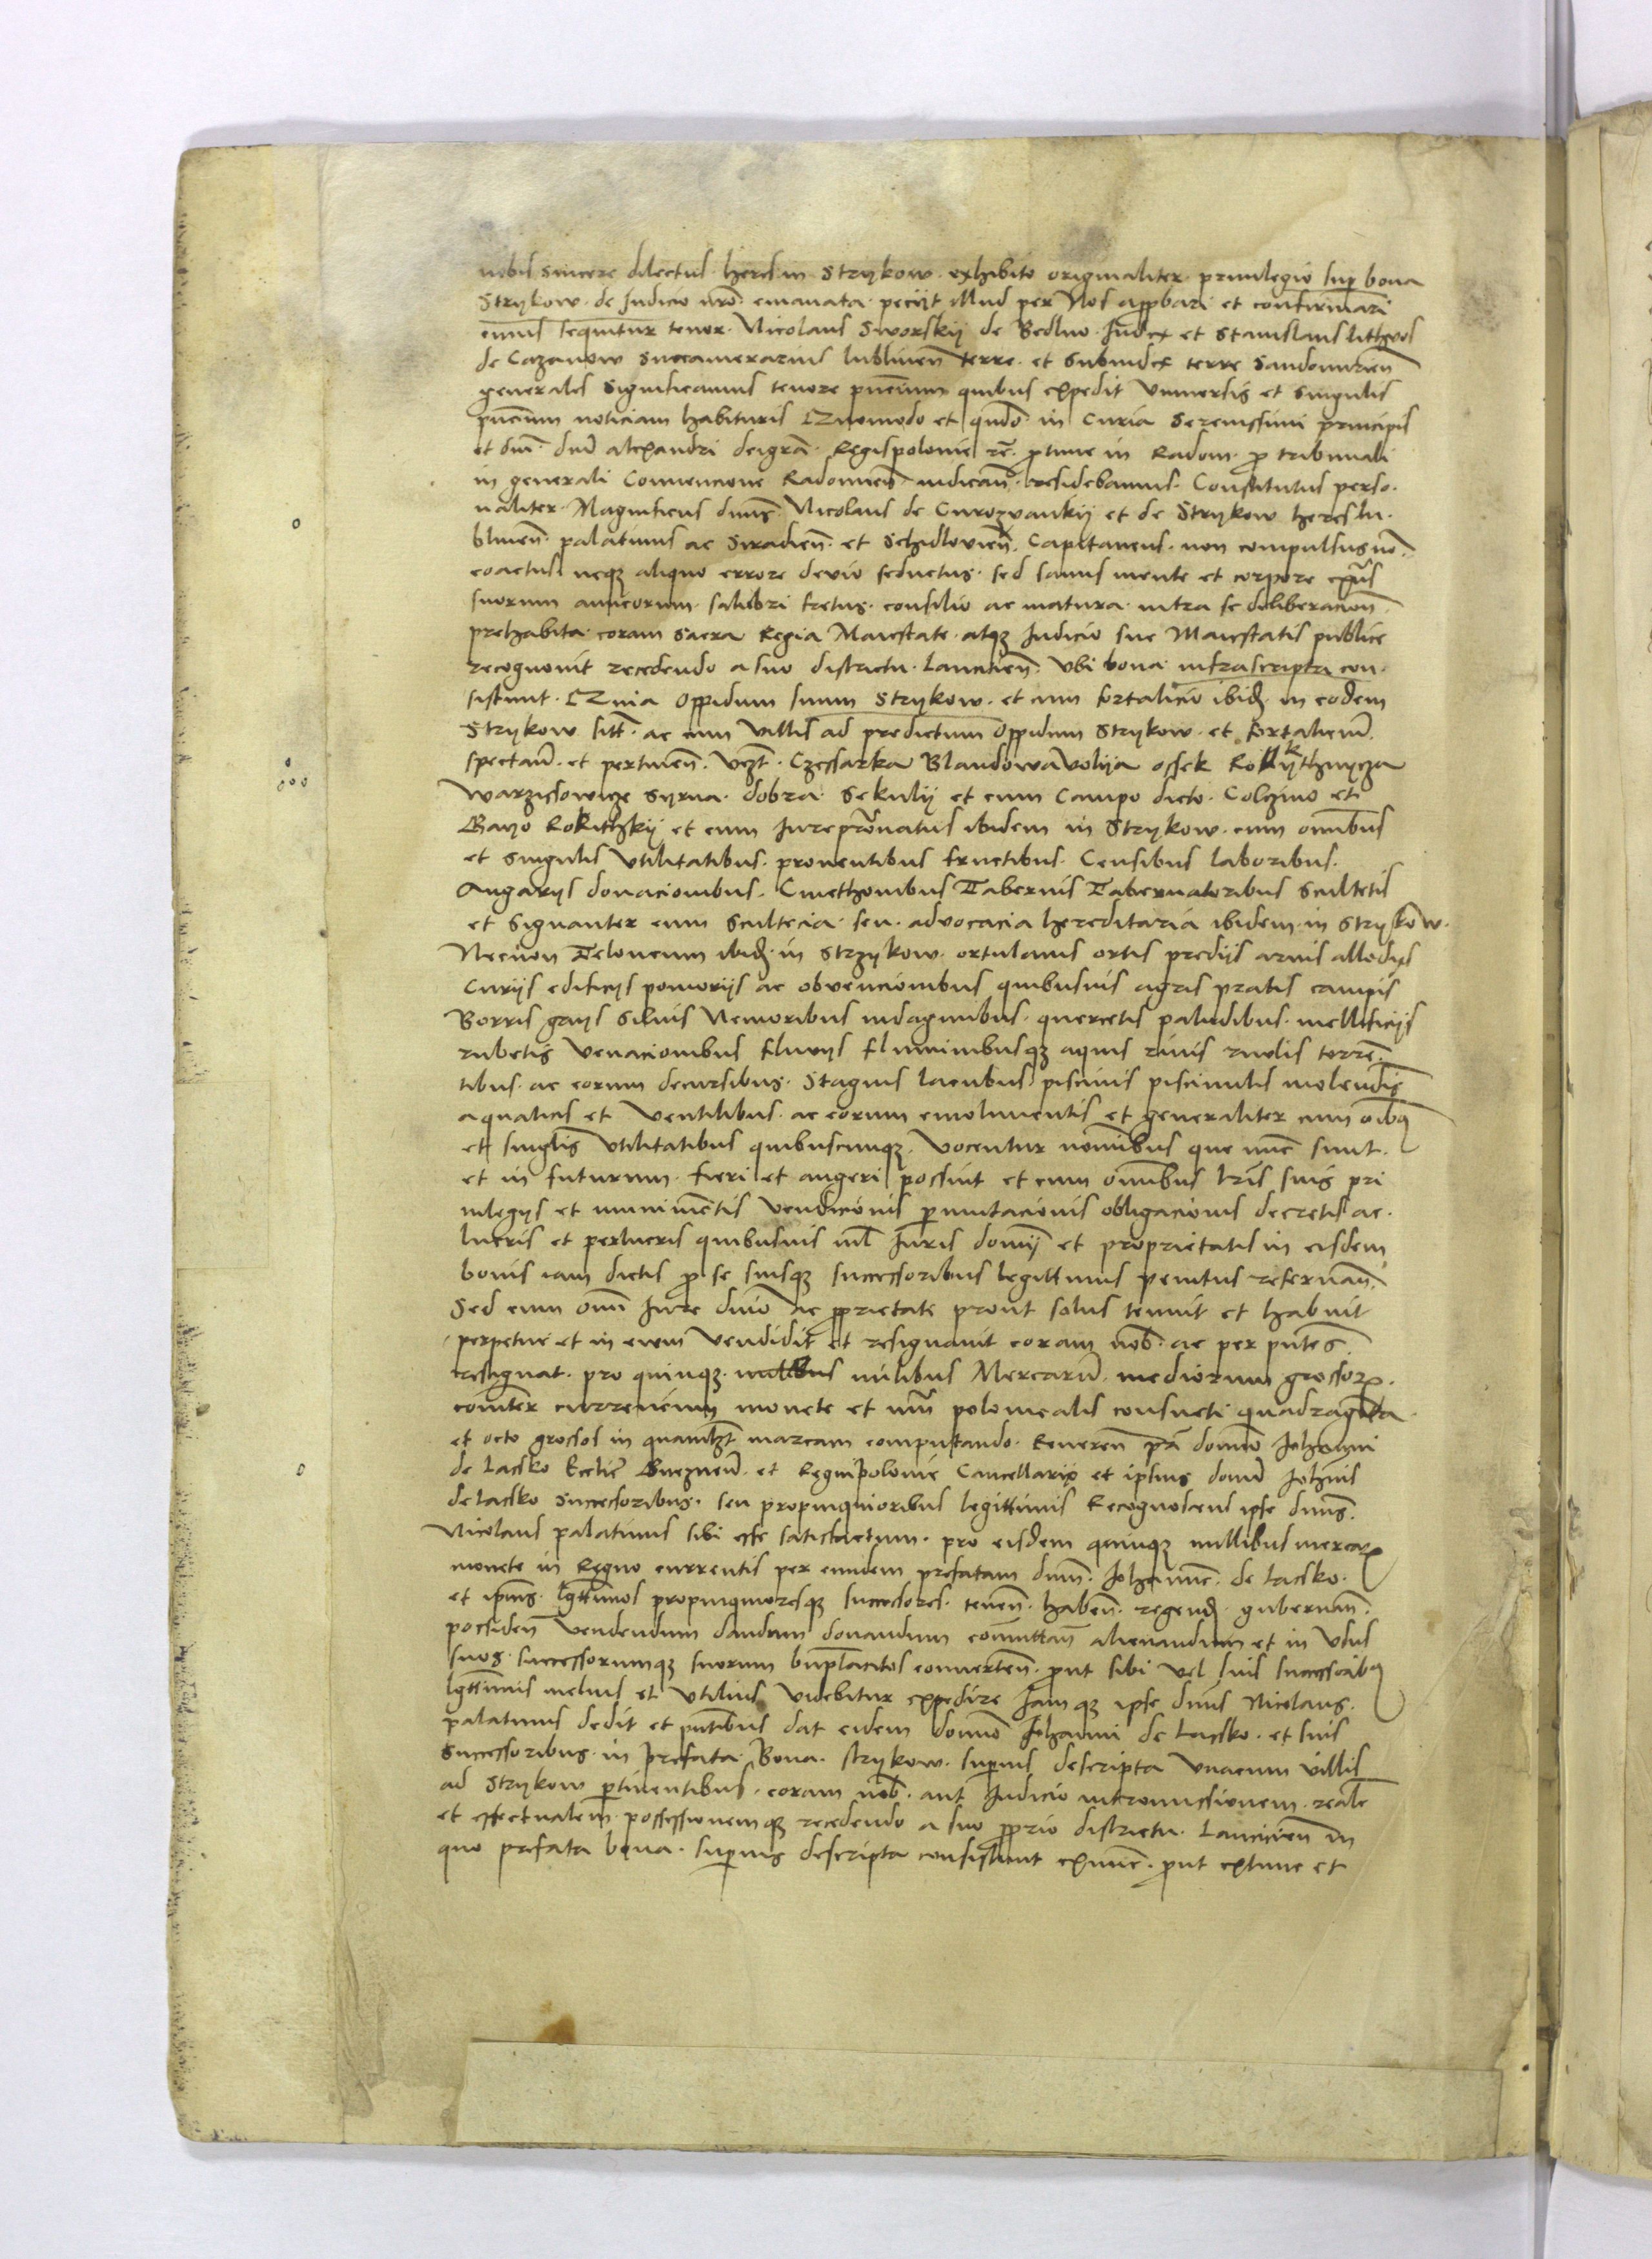 nobis sincere dilectus heres in Strykow exhibito originaliter privilegio sup bona
Strykow de Judicio nro emanata peciit illud per Nos approbari et confirmari
cuius sequitur tenor Nicolaus Sworskij de Bedlno Judex et Stanislaus litthwos
de Cazanow Succamerarius lublinen terre et Subiudex terre Sandomirien
generales Significamus tenore pntium quibus expedit Universis et Singulis
pntium noticiam habituris Quomodo et qndo in Curia Serenissimi principis
et dni dni alexandri dei gra Regis polonie rc protunc in Radom pro tribunali
in generali Convencione Radomien iudican residebamus Constitutus perso
naliter Magnificus dnus Nicolaus de Curozwankij et de Strykow heres lu
blinen palatinus ac Siradien et Schidlovien Capitaneus non compulsus no
coactus neqz aliquo errore devio seductus sed sanus mente et corpore exns
suorum amicorum salubri fretus consilio ac matura intra se deliberacion
prehabita coram Sacra Regia Maiestate atqz Judicio sue Maiestatis publice
recognovit recedendo a suo districtu Lancicien Ubi bona infrascripta con
sistunt Quia Oppidum suum Strykow et cum fortalicio ibid in eodem
Strykow sitt ac cum Villis ad predictum Oppidum Strykow et fortalicium
spectan et pertinen Vezt Czessarka Blandowawolija ossek Rokijthnycza
Warzissowicze Syrna dobra Sekulij et cum Campo dicto Colczino et
Gayo Rokithskij et cum Jurepronatus ibidem in Strykow cum omnibus
et singulis Utilitatibus proventibus fructibus Censibus laboribus
Angarijs donacionibus Cmethonibus Tabernis Tabernatoribus Scultetis
et Signanter cum Scultecia seu advocacia hereditaria ibidem in Strykow
Necnon Teloneum ibid in Strzykow ortulanis ortis predijs arvis allodijs
Curijs edificijs pomerijs ac obvencionibus quibusvis agris pratis campis
Borris gays Silvis Nemoribus indaginibus quercetis paludibus mellificijs
rubetis Venacionibus fluvijs fluminibusqz aquis rivis rivulis torren
tibus ac eorum decursibus Stagnis lacubus piscinis piscinulis molendis
aquaticis et Ventilibus ac eorum emolimentis et generaliter cum oibq
et singlis Utilitatibus quibuscunqz Vocentur nominibus que nunc sunt
et in futurum fieri et augeri possint et cum omnibus lris suis pri
vilegijs et munimentis Vendicionis permutacionis obligacionis decretis ac
lucris et perlucris quibusvis nil Juris domij et proprietatis in eisdem
bonis iam dictis pro se suisqz successoribus legittimis penitus reservan
Sed cum omi Jure dnio ac proprietate prout solus tenuit et habuit
perpetue et in evum Vendidit et resignavit coram nob ac per pntes
resignat pro quinqz millibus milibus Mercarum mediorum grossor
comiter currencium monete et numi polonicalis consueti quadraginta
et octo grossos in quamlzt marcam computando Reveren pa domino Johanni
de lassko Ecclie Gneznen et Regni polonie Cancellario et ipsius domi Johannis
de lassko Successoribus seu propinquioribus legittimis Recognoscens ipse dnus
Nicolaus palatinus sibi esse satisfactum pro eisdem quinqz millibus mercar
monete in Regno currentis per eundem prefatum dnum Johannem de lassko
et ipius lgittimos propinquioresqz successores tenen haben regend gubernan
possiden Vendendum dandum donandum commuttan alienandum et in Usus
suos successorumqz suorum bnplacitos converten prout sibi vel suis successoribq
lgittimis melius et Utilius videbitur expedire Jamqz ipse dnus Nicolaus
palatinus dedit et pntibus dat eidem domino Johanni de lassko et suis
Successoribus in prefata Bona strykow superius descripta Unacum Villis
ad Strykow pertinentibus coram nob aut Judicio intromissionem realem
et effectualem possessionemqz recedendo a suo proprio districtu Lancicien in
quo prefata bona superius descripta consistunt exnunc prout extunc et